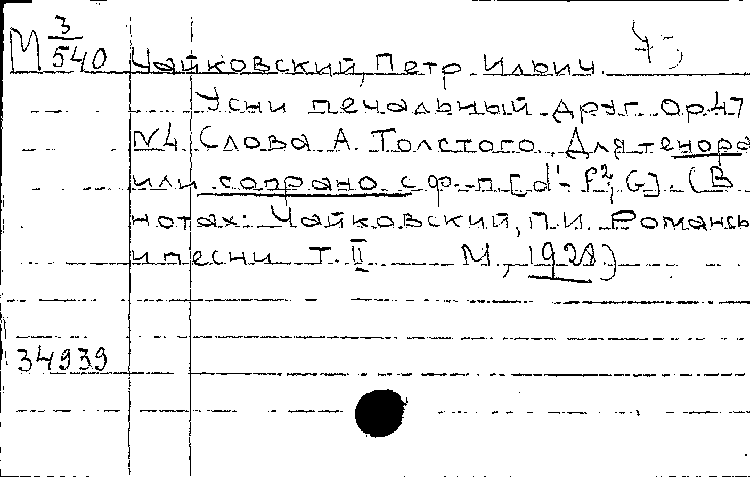 М 3/540 Чайковский, Петр Ильич.
Усни печальный друг. Op.47
N4. Слова А. Толстого. Для тенора
или сопрано с ф-п. [d¹- f², G]. (В
нотах: Чайковский, П.И. Романсы
и песни Т. II М, 1928)
34939